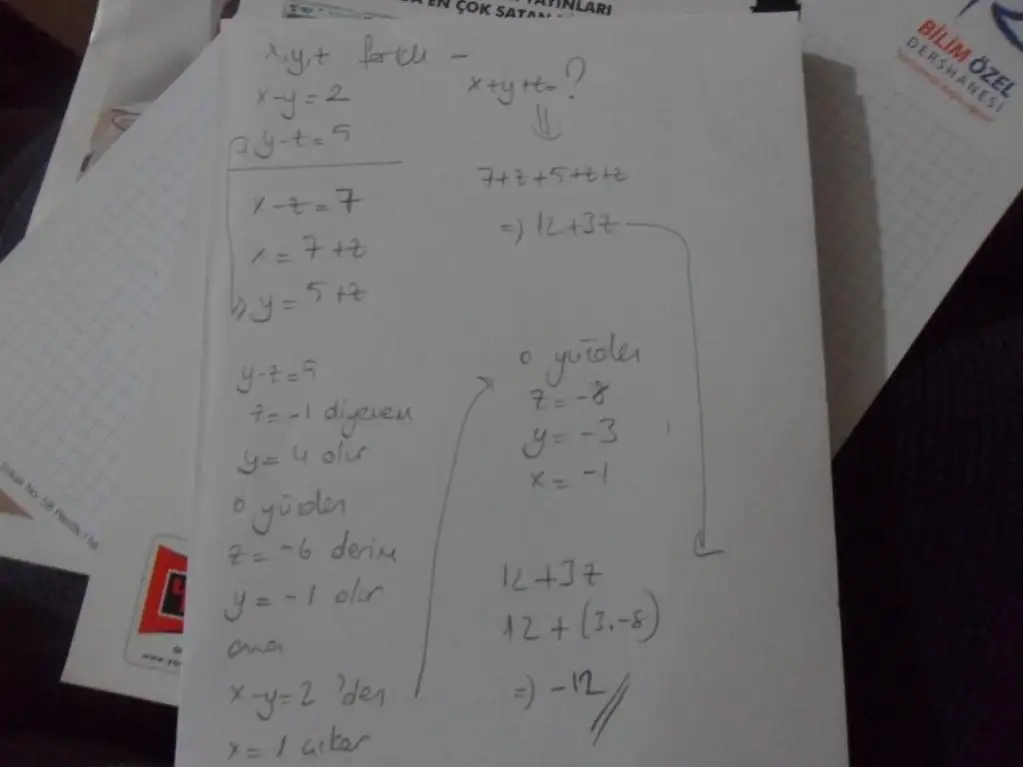 YAYINLARI
EN ÇOK SATAN
BİLİM ÖZEL
DERSHANESİ
x,y,z farklı -
x-y=2
y-z=5
x-z=7
x=7+z
y=5+z
y-z=5
z=-1 diyemem
y=4 olur
o yüzden
z=-6 derim
y=-1 olur
ama
x-y=2 'den
x=1 çıkar
x+y+z=?
7+z+5+z+z
=) 12+3z
o yüzden
z=-8
y=-3
x=-1
12+3z
12+(3.-8)
=) -12//
Sokak No: 58
www.